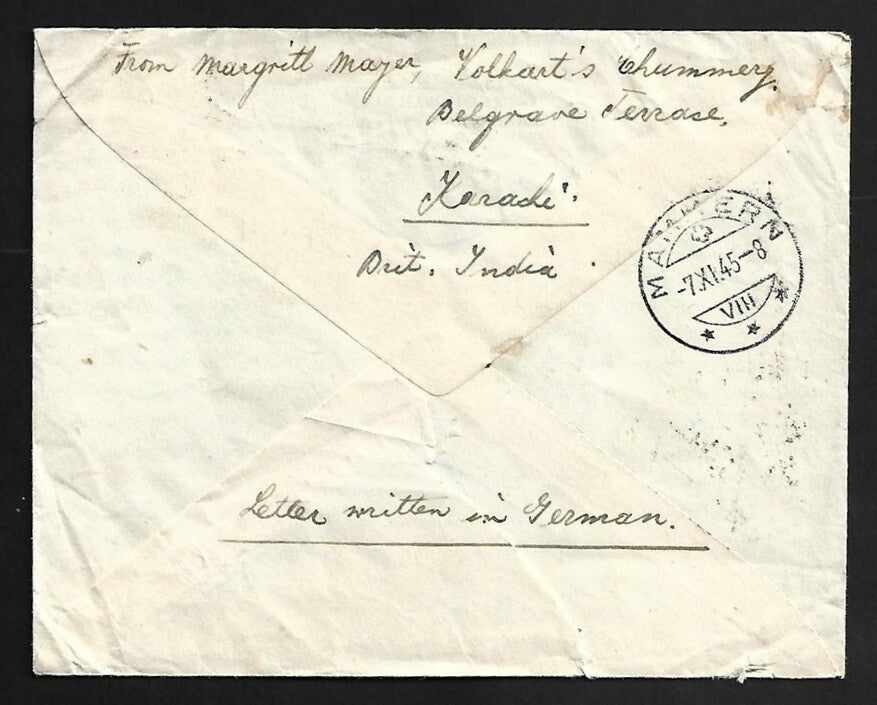 From Margritt Mayer, Volkart's Chummery.
Belgrave Terrase.
Karachi.
Brit. India.
MAMMERN
-7.XI.45-8
VIII
Letter written in German.